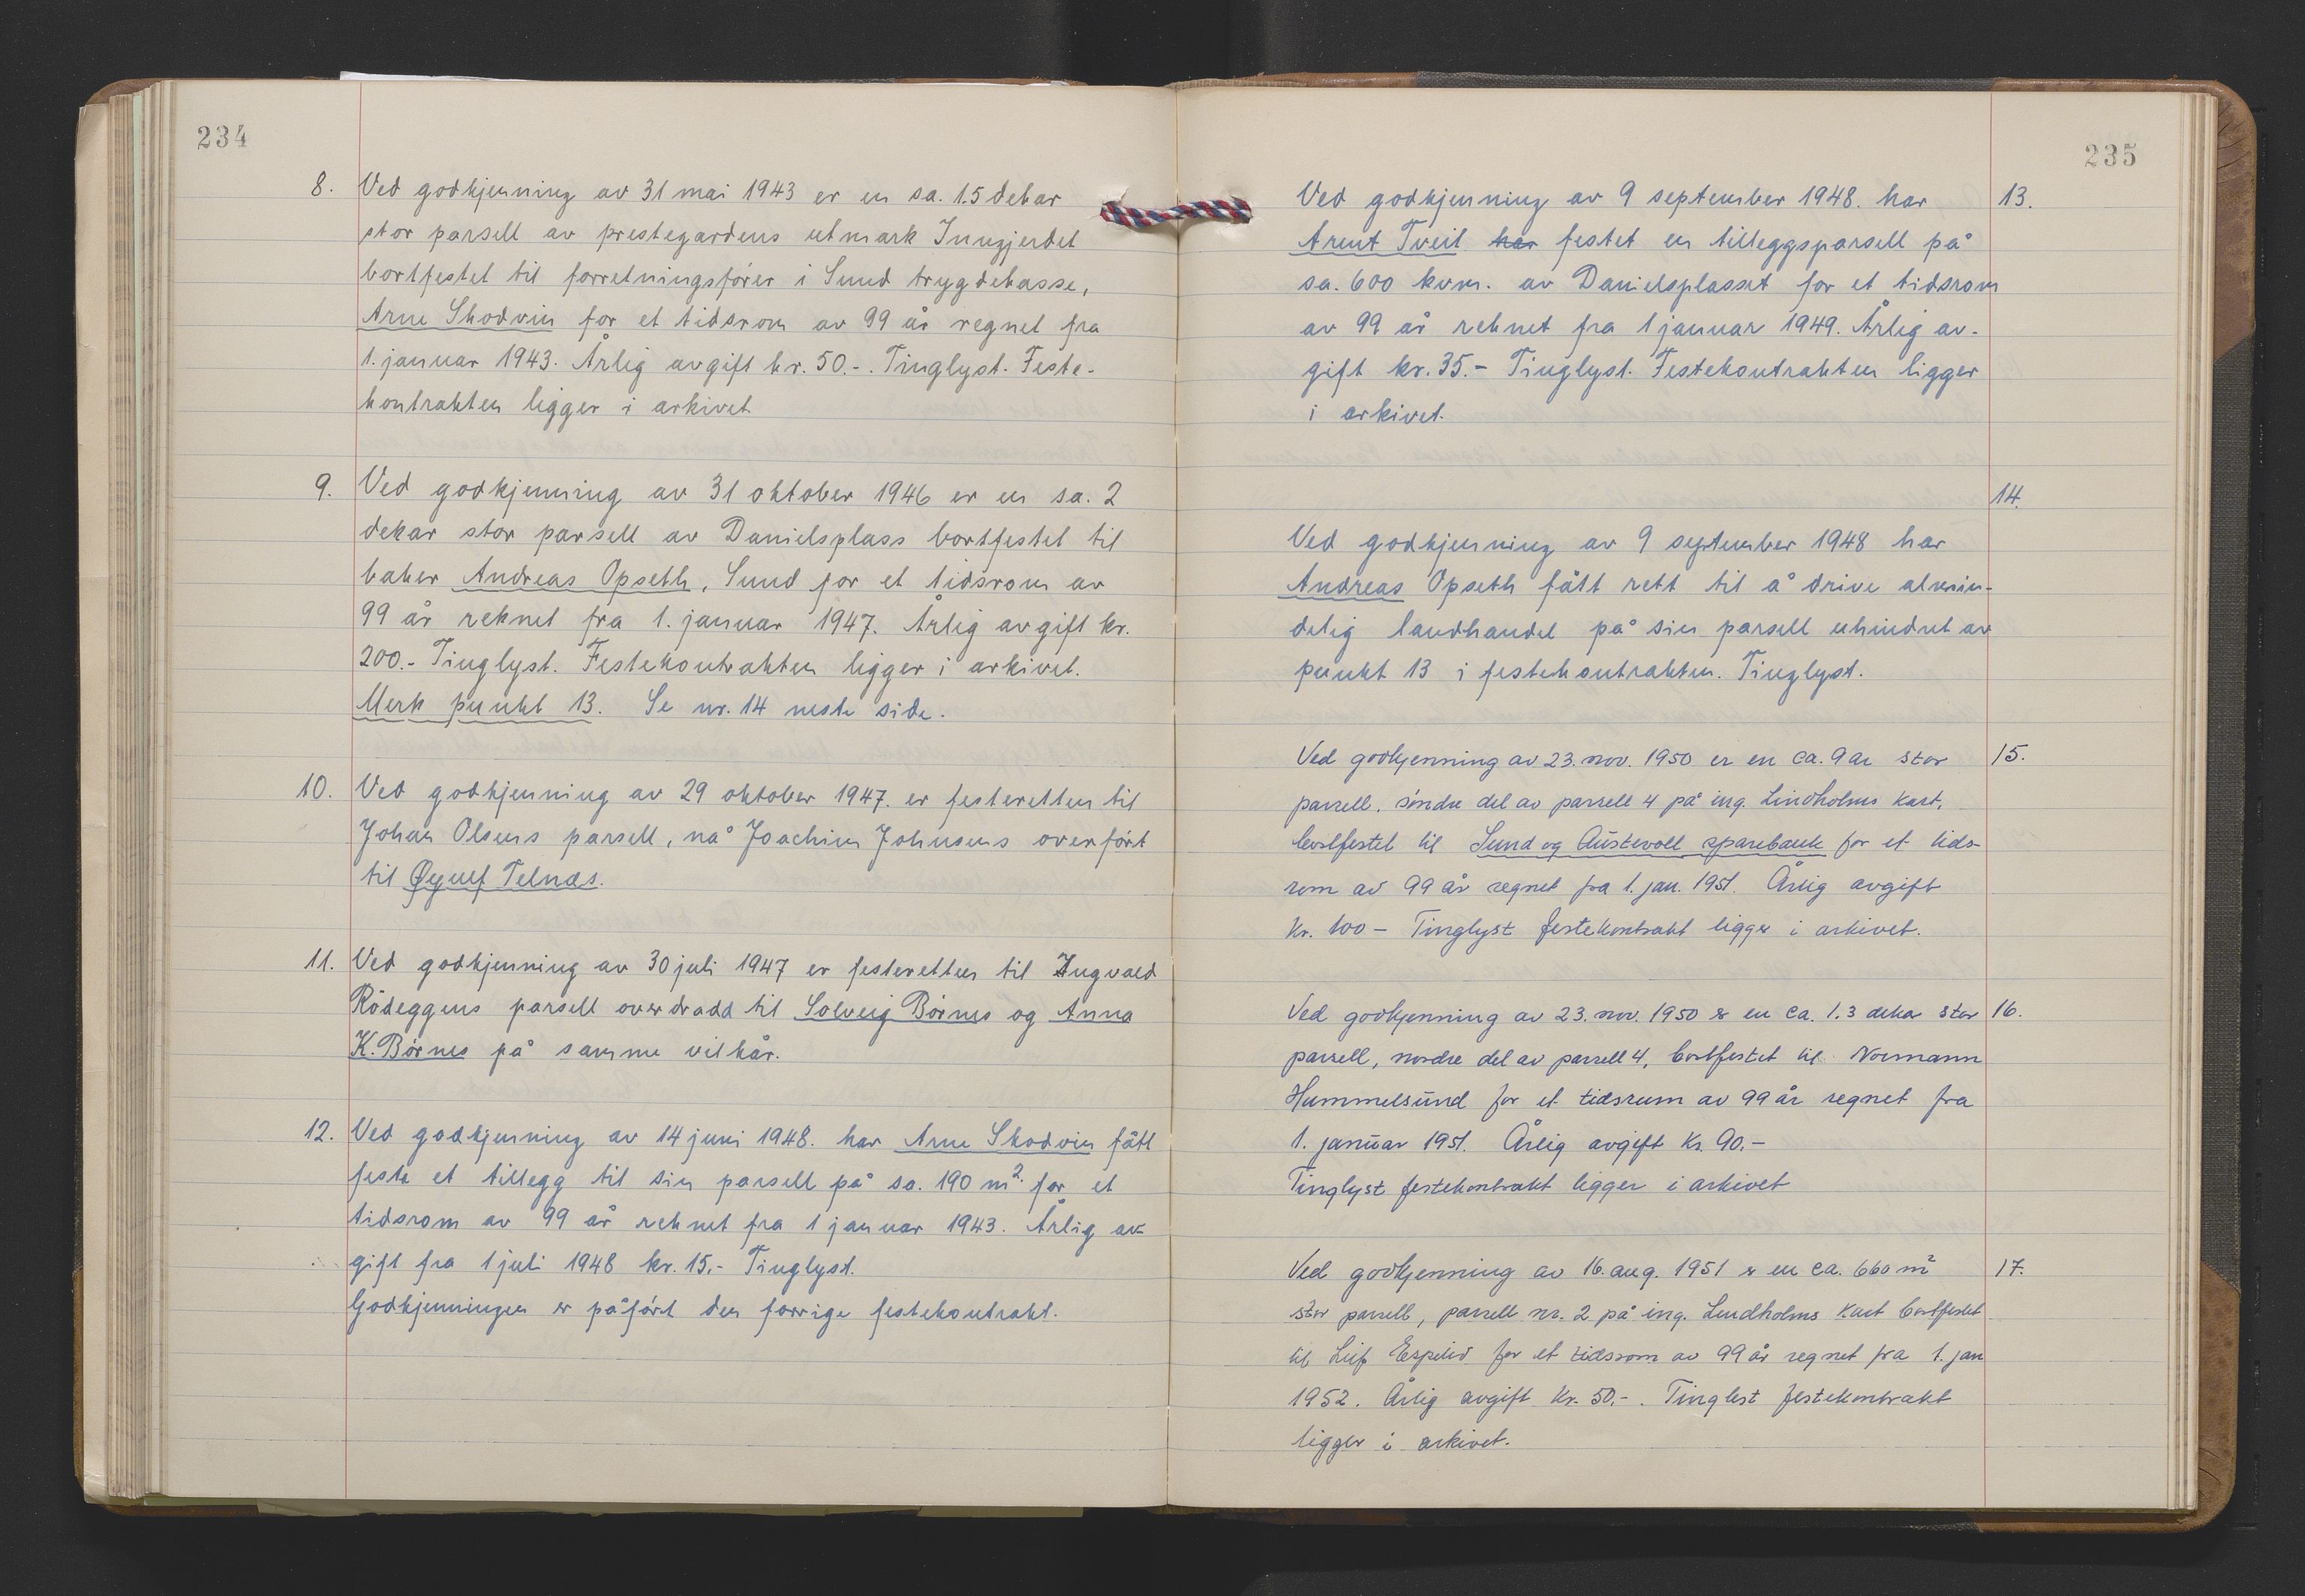 234
8. Ved godkjenning av 31 mai 1943 er en sa. 1.5 dekar
stor parsell av prestegardens utmark Inngjerdet
bortfestet til forretningsfører i Sund trygdekasse,
Arne Skodvin for et tidsrom av 99 år regnet fra
1. januar 1943. Årlig avgift kr. 50.-. Tinglyst. Feste-
kontrakten ligger i arkivet
9. Ved godkjenning av 31 oktober 1946 er en sa. 2
dekar stor parsell av Danielsplass bortfestet til
baker Andreas Opseth, Sund for et tidsrom av
99 år reknet fra 1. januar 1947. Årlig avgift kr.
200.- Tinglyst. Festekontrakten ligger i arkivet.
Merk punkt 13. Se nr. 14 neste side.
10. Ved godkjenning av 29 oktober 1947. er festeretten til
Johan Olsens parsell, nå Joachim Johnsens overført
til Øynef Telnæs.
11. Ved godkjenning av 30 juli 1947 er festeretten til Ingvald
Rødeggens parsell overdradd til Solveig Børnes og Anna
K. Børnes på samme vilkår.
12. Ved godkjenning av 14 juni 1948. har Arne Skodvin fått
feste et tillegg til sin parsell på sa. 190 m2. for et
tidsrom av 99 år reknet fra 1 januar 1943. Årlig av-
gift fra 1 juli 1948 kr. 15.- Tinglyst.
Godkjenningen er påført den forrige festekontrakt.
235
Ved godkjenning av 9 september 1948. har 13.
Arent Tveit har festet en tilleggsparsell på
sa. 600 kvm. av Danielsplasset for et tidsrom
av 99 år reknet fra 1 januar 1949. Årlig av-
gift kr. 35.- Tinglyst. Festekontrakten ligger
i arkivet.
14.
Ved godkjenning av 9 september 1948 har
Andreas Opseth fått rett til å drive almin-
delig landhandel på sin parsell uhindret av
punkt 13 i festekontrakten. Tinglyst.
Ved godkjenning av 23. nov. 1950 er en ca. 9 ar stor 15.
parsell, søndre del av parsell 4 på ing. Lindholms kart,
bortfestet til Sund og Austevoll sparebank for et tids-
rom av 99 år regnet fra 1. jan. 1951. Årlig avgift
Kr. 100 - Tinglyst festekontrakt ligger i arkivet.
Ved godkjenning av 23. nov. 1950 er en ca. 1.3 dekar stor 16.
parsell, nordre del av parsell 4, bortfestet til Normann
Hummelsund for et tidsrum av 99 år regnet fra
1. januar 1951. Årlig avgift Kr. 90.-
Tinglyst festekontrakt ligger i arkivet
Ved godkjenning av 16. aug. 1951 er en ca. 660 m2 17.
stor parsell, parsell nr. 2 på ing. Lindholms kart bortfestet
til Leif Espelid for et tidsrom av 99 år regnet fra 1. jan
1952. Årlig avgift Kr. 50.-. Tinglest festekontrakt
ligger i arkivet.